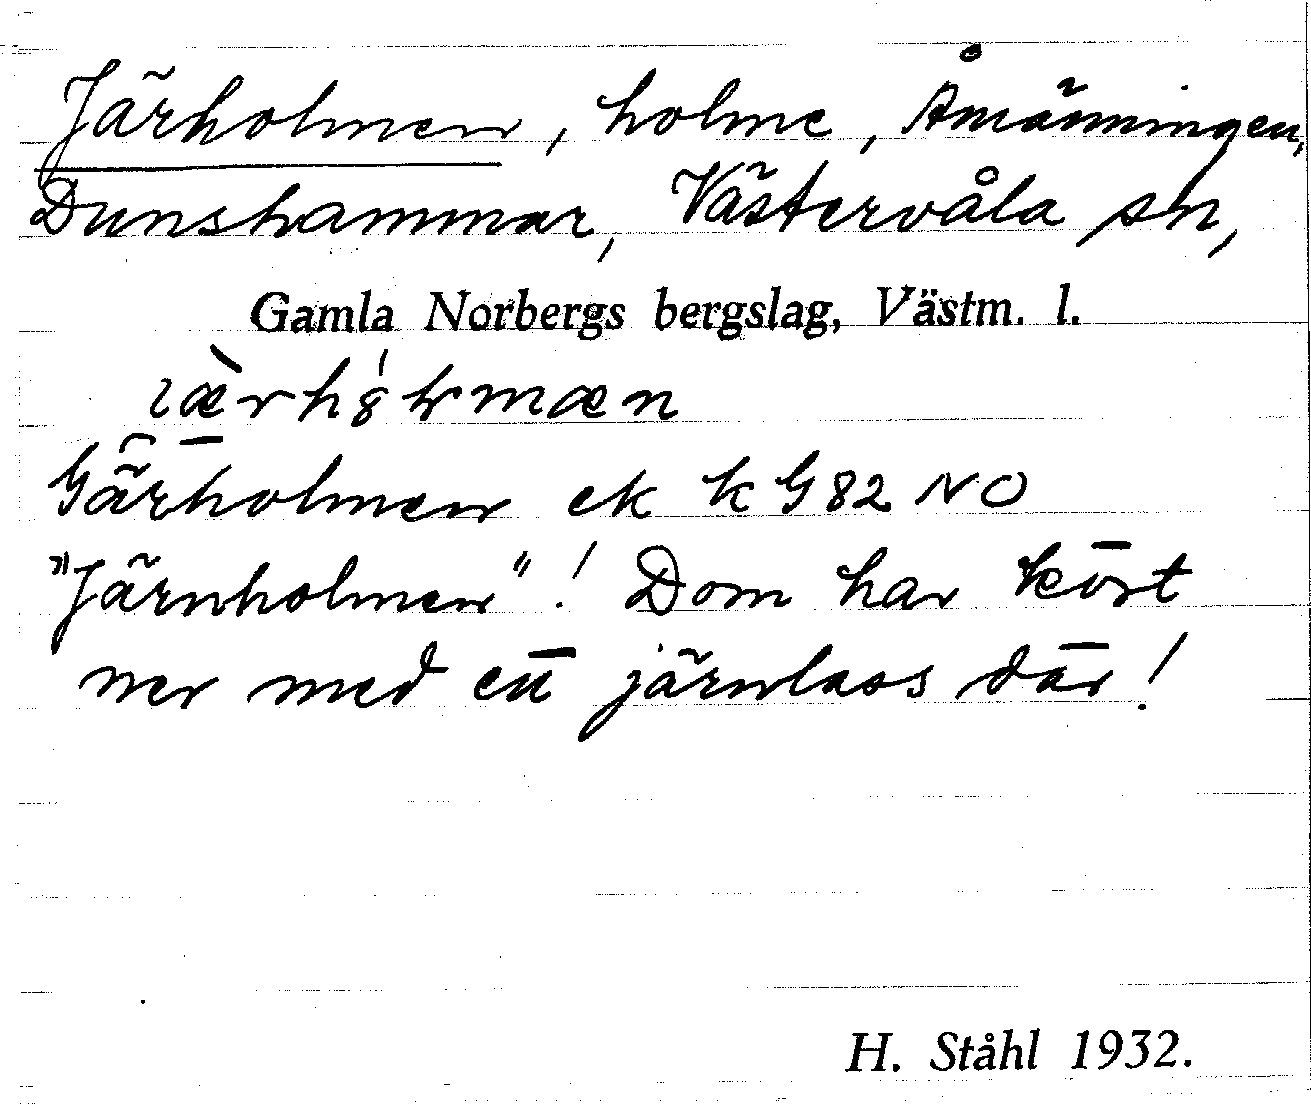 Järholmen, holme, Åmänningen,
Dunshammar, Västervåla sn,
Gamla Norbergs bergslag, Västm. l.
Gärholmen ek k G82 NO
"Järnholmen"! Dom har kört
ner med en järnlass där!
H. Ståhl 1932.